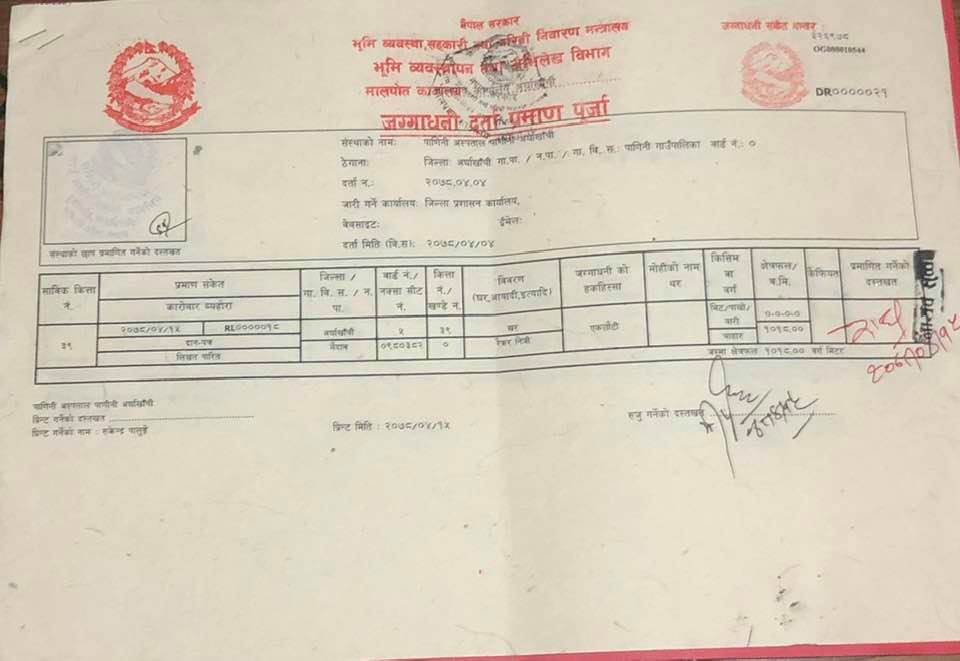 नेपाल सरकार
भूमि व्यवस्था, सहकारी तथा गरिबी निवारण मन्त्रालय
भूमि व्यवस्थापन तथा अभिलेख विभाग
मालपोत कार्यालय
जग्गाधनी दर्ता प्रमाण पूर्जा
जग्गाधनी संकेत नम्बर :
OG000010544
DR0000021
संस्थाको छाप प्रमाणित गर्नेको दस्तखत
संस्थाको नाम: पाणिनी अस्पताल पाणीनी अर्घाखाँची
ठेगाना: जिल्ला: अर्घाखाँची गा.पा. / न.पा. / गा. वि. स.: पाणिनी गाउँपालिका वार्ड नं.: ०
दर्ता न.: २०७८,०४,०४
जारी गर्ने कार्यालय: जिल्ला प्रशासन कार्यालय,
वेवसाइट: ईमेल:
दर्ता मिति (वि.स): २०७८/०४/०४
साविक कित्ता नं.
प्रमाण संकेत
कारोबार व्यहोरा
जिल्ला / गा. वि. स. / न. पा.
वार्ड नं./ नक्सा सीट नं.
कित्ता नं./ खण्डे नं.
विवरण (घर,आवादी,इत्यादि)
जग्गाधनी को हकहिस्सा
मोहीको नाम थर
किसिम वा वर्ग
क्षेत्रफल/ ब.मि.
कैफियत
प्रमाणित गर्नेको दस्तखत
३९
२०७८/०४/१५ RL0000018
दान-पत्र
लिखत पारित
अर्घाखाँची
५
०९८०३८२
३९
०
घर
एकलौटी
बिट/पाखो/बारी
चाहार
०-०-०-०
१०१८.००
जम्मा क्षेत्रफल १०१८.०० वर्ग मिटर
पाणिनी अस्पताल पाणीनी अर्घाखाँची
प्रिन्ट गर्नेको दस्तखत
प्रिन्ट गर्नेको नाम :
प्रिन्ट मिति : २०७८/०४/१५
रुजु गर्नेको दस्तखत